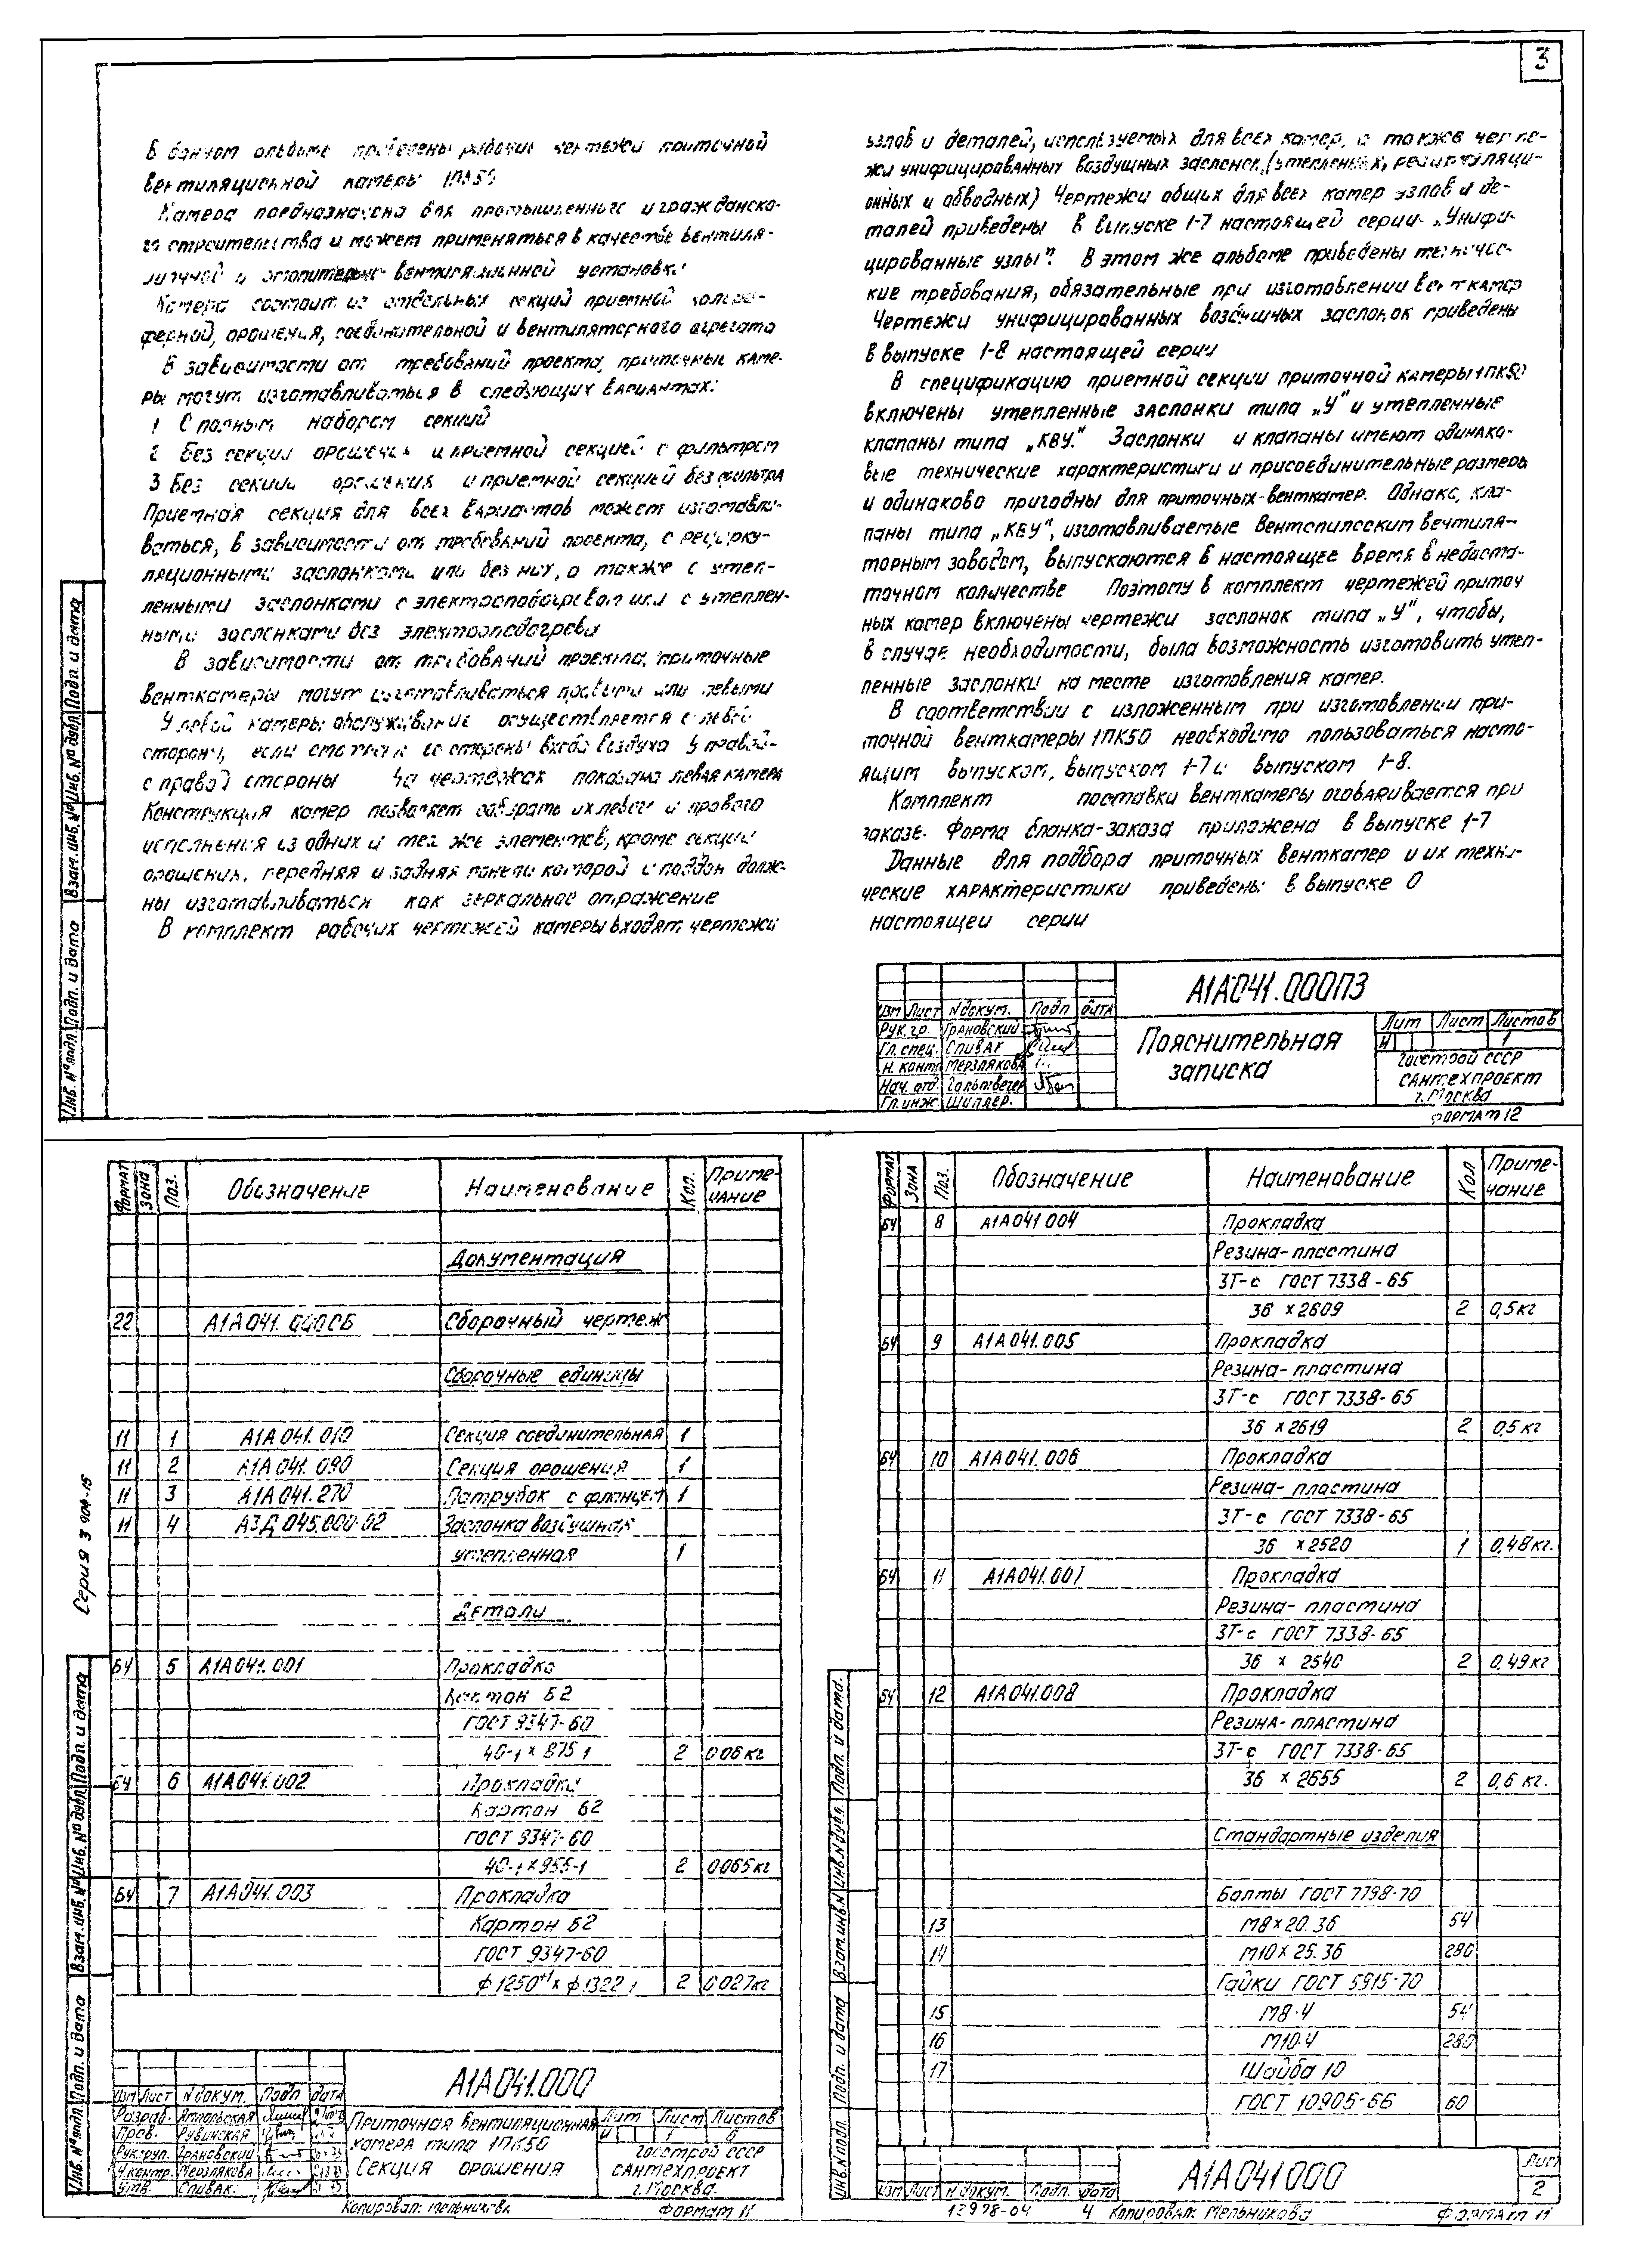 3
В данном альбоме приведены рабочие чертежи приточной
вентиляционной камеры 1ПК50
Камера предназначена для промышленного и гражданско-
го строительства и может применяться в качестве вентиля-
ционной и отопительно-вентиляционной установки
Камера состоит из отдельных секций приемной калори-
ферной, орошения, соединительной и вентиляторного агрегата
В зависимости от требований проекта, приточные каме-
ры могут изготавливаться в следующих вариантах:
1 С полным набором секций
2 Без секции орошения и приемной секцией с фильтром
3 Без секции орошения и приемной секцией без фильтра
Приемная секция для всех вариантов может изготавли-
ваться, в зависимости от требований проекта, с рецирку-
ляционными заслонками или без них, а также с утеп-
ленными заслонками с электроподогревом или с утеплен-
ными заслонками без электроподогрева
В зависимости от требований проекта, приточные
венткамеры могут изготавливаться правыми или левыми
У левой камеры обслуживание осуществляется с левой
стороны, если смотреть со стороны входа воздуха У правой-
с правой стороны На чертежах показана левая камера
Конструкция камер позволяет собирать их левого и правого
исполнения из одних и тех же элементов, кроме секции
орошения, передняя и задняя панели которой и поддон долж-
ны изготавливаться как зеркальное отражение
В комплект рабочих чертежей камеры входят чертежи
узлов и деталей, используемых для всех камер, а также черте-
жи унифицированных воздушных заслонок (утепленных, рециркуляци-
онных и обводных) Чертежи общих для всех камер узлов и де-
талей приведены в выпуске 1-7 настоящей серии „Унифи-
цированные узлы". В этом же альбоме приведены техничес-
кие требования, обязательные при изготовлении венткамер
Чертежи унифицированных воздушных заслонок приведены
в выпуске 1-8 настоящей серии
В спецификацию приемной секции приточной камеры 1ПК50
включены утепленные заслонки типа „У" и утепленные
клапаны типа „КВУ." Заслонки и клапаны имеют одинако-
вые технические характеристики и присоединительные размеры
и одинаково пригодны для приточных-венткамер. Однако, кла-
паны типа „КВУ", изготавливаемые Вентспилсским вентиля-
торным заводом, выпускаются в настоящее время в недоста-
точном количестве Поэтому в комплект чертежей приточ
ных камер включены чертежи заслонок типа „У", чтобы,
в случае необходимости, была возможность изготовить утеп-
ленные заслонки на месте изготовления камер.
В соответствии с изложенным при изготовлении при-
точной венткамеры 1ПК50 необходимо пользоваться насто-
ящим выпуском, выпуском 1-7 и выпуском 1-8.
Комплект поставки венткамеры оговаривается при
заказе. Форма бланка-заказа приложена в выпуске 1-7
Данные для подбора приточных венткамер и их техни-
ческие характеристики приведены в выпуске 0
настоящей серии
А1А041.000ПЗ
Изм Лист N докум. Подп Дата
Рук.гр. Грановский
Гл.спец. Спивак
Н. контр Мерзлякова
Нач. отд.
Гл.инж. Шиллер.
Пояснительная
записка
Лит Лист Листов
И 1
Госстрой СССР
САНТЕХПРОЕКТ
г. Москва
Формат 12
Инв. № подл. Подп. и дата Взам. инв. № Инв. № дубл. Подп. и дата
Серия 3 904-15
Формат Зона Поз. Обозначение Наименование Кол. Приме-
чание
Документация
22 А1А041.000СБ Сборочный чертеж
Сборочные единицы
11 1 А1А041.010 Секция соединительная 1
11 2 А1А041.090 Секция орошения 1
11 3 А1А041.270 Патрубок с фланцем 1
11 4 А3Д045.000-02 Заслонка воздушная
утепленная 1
Детали
БЧ 5 А1А041.001 Прокладка
Картон Б2
ГОСТ 9347-60
40-1 × 875-1 2 0,06 кг
БЧ 6 А1А041.002 Прокладка
Картон Б2
ГОСТ 9347-60
40-1 × 955-1 2 0,065 кг
БЧ 7 А1А041.003 Прокладка
Картон Б2
ГОСТ 9347-60
ф1250+1 × ф1322-1 2 0,027 кг
А1А041.000
Изм Лист N докум. Подп Дата
Разраб. Ямпольская
Пров. Рувинская
Рук.груп. Грановский
Н.контр. Мерзлякова
Утв. Спивак
Приточная вентиляционная
камера типа 1ПК50
Секция орошения
Лит Лист Листов
И 1
Госстрой СССР
САНТЕХПРОЕКТ
г. Москва.
Копировал: Мельникова Формат 11
Инв. № подл. Подп. и дата Взам. инв. № Инв. № дубл. Подп. и дата
Формат Зона Поз. Обозначение Наименование Кол Приме-
чание
БЧ 8 А1А041.004 Прокладка
Резина-пластина
3Т-с ГОСТ 7338-65
36 × 2609 2 0,5 кг
БЧ 9 А1А041.005 Прокладка
Резина-пластина
3Т-с ГОСТ 7338-65
36 × 2619 2 0,5 кг
БЧ 10 А1А041.006 Прокладка
Резина-пластина
3Т-с ГОСТ 7338-65
36 × 2520 1 0,48 кг.
БЧ 11 А1А041.007 Прокладка
Резина-пластина
3Т-с ГОСТ 7338-65
36 × 2540 2 0,49 кг
БЧ 12 А1А041.008 Прокладка
Резина-пластина
3Т-с ГОСТ 7338-65
36 × 2655 2 0,6 кг.
Стандартные изделия
Болты ГОСТ 7798-70
13 М8×20.36 54
14 М10×25.36 280
Гайки ГОСТ 5915-70
15 М8.4 54
16 М10.4 280
17 Шайба 10
ГОСТ 10906-66 60
Изм Лист N докум. Подп. Дата
А1А041000
Лист
2
13978-04 4 Копировал: Мельникова Формат 11
Инв.№ подл. Подп. и дата Взам.инв.№ Инв.№ дубл. Подп. и дата.